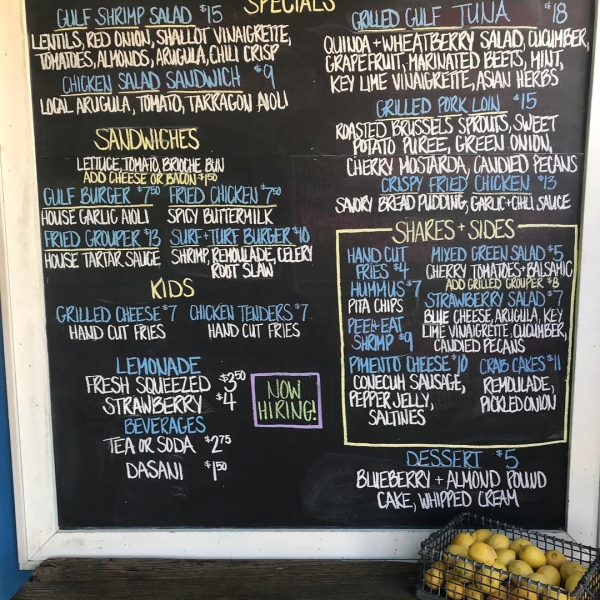 SPECIALS
GULF SHRIMP SALAD $15
LENTILS, RED ONION, SHALLOT VINAIGRETTE,
TOMATOES, ALMONDS, ARUGULA, CHILI CRISP
CHICKEN SALAD SANDWICH $9
LOCAL ARUGULA, TOMATO, TARRAGON AIOLI
SANDWICHES
LETTUCE, TOMATO, BRIOCHE BUN
ADD CHEESE OR BACON $1.50
GULF BURGER $7.50
HOUSE GARLIC AIOLI
FRIED CHICKEN $7.50
SPICY BUTTERMILK
FRIED GROUPER $13
HOUSE TARTAR SAUCE
SURF+TURF BURGER $10
SHRIMP, REMOULADE, CELERY
ROOT SLAW
KIDS
GRILLED CHEESE $7
HAND CUT FRIES
CHICKEN TENDERS $7
HAND CUT FRIES
LEMONADE
FRESH SQUEEZED $3.50
STRAWBERRY $4
BEVERAGES
TEA OR SODA $2.75
DASANI $1.50
NOW
HIRING!
GRILLED GULF TUNA $18
QUINOA + WHEATBERRY SALAD, CUCUMBER,
GRAPEFRUIT, MARINATED BEETS, MINT,
KEY LIME VINAIGRETTE, ASIAN HERBS
GRILLED PORK LOIN $15
ROASTED BRUSSELS SPROUTS, SWEET
POTATO PUREE, GREEN ONION,
CHERRY MOSTARDA, CANDIED PECANS
CRISPY FRIED CHICKEN $13
SAVORY BREAD PUDDING, GARLIC+CHILI SAUCE
SHARES + SIDES
HAND CUT
FRIES $4
HUMMUS $7
PITA CHIPS
PEEL+EAT
SHRIMP $9
MIXED GREEN SALAD $5
CHERRY TOMATOES + BALSAMIC
ADD GRILLED GROUPER $8
STRAWBERRY SALAD $7
BLUE CHEESE, ARUGULA, KEY
LIME VINAIGRETTE, CUCUMBER,
CANDIED PECANS
PIMENTO CHEESE $10
CONECUH SAUSAGE,
PEPPER JELLY,
SALTINES
CRAB CAKES $11
REMOULADE,
PICKLED ONION
DESSERT $5
BLUEBERRY + ALMOND POUND
CAKE, WHIPPED CREAM